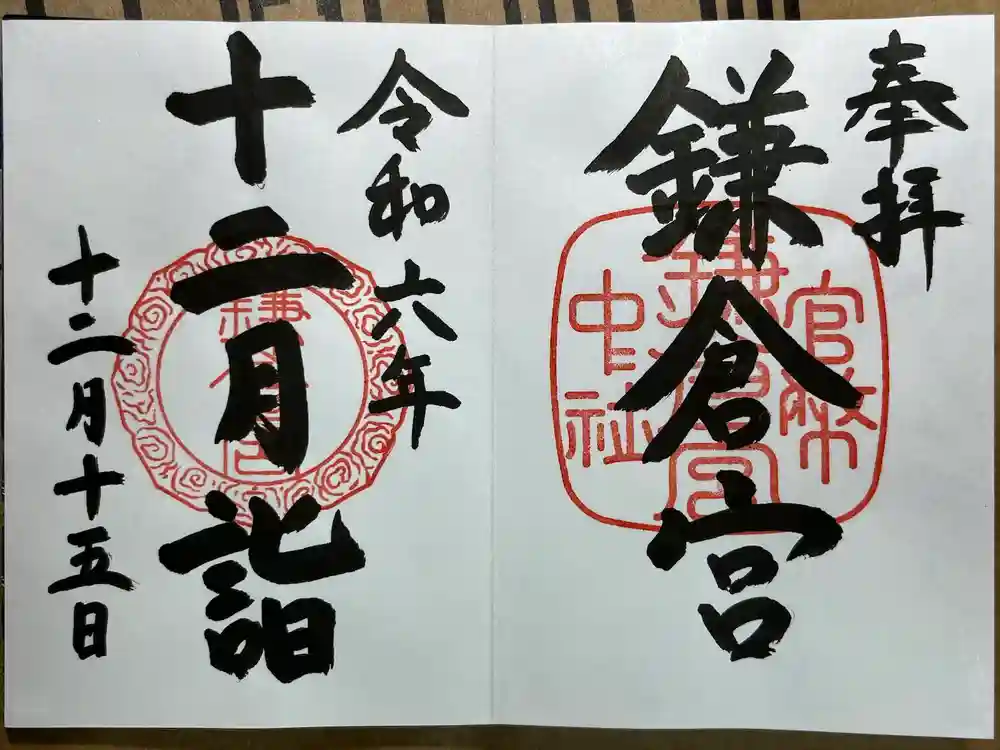 奉拝
鎌倉宮
官幣
鎌倉宮
中社
令和六年
十二月詣
鎌倉宮
十二月十五日